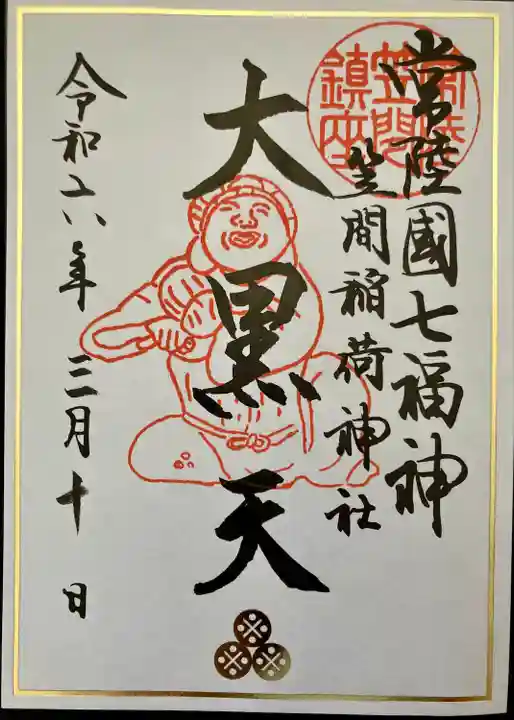 常陸國七福神
笠間稲荷神社
常陸
笠間
鎮座
大黒天
令和六年 三月十日